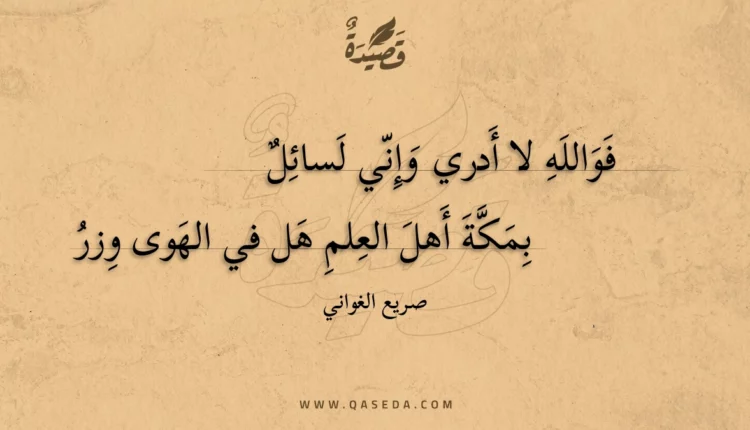 قَصِيْدَةٌ
فَوَاللَهِ لا أَدري وَإِنّي لَسائِلٌ
بِمَكَّةَ أَهلَ العِلمِ هَل في الهَوى وِزرُ
صريع الغواني
WWW.QASEDA.COM